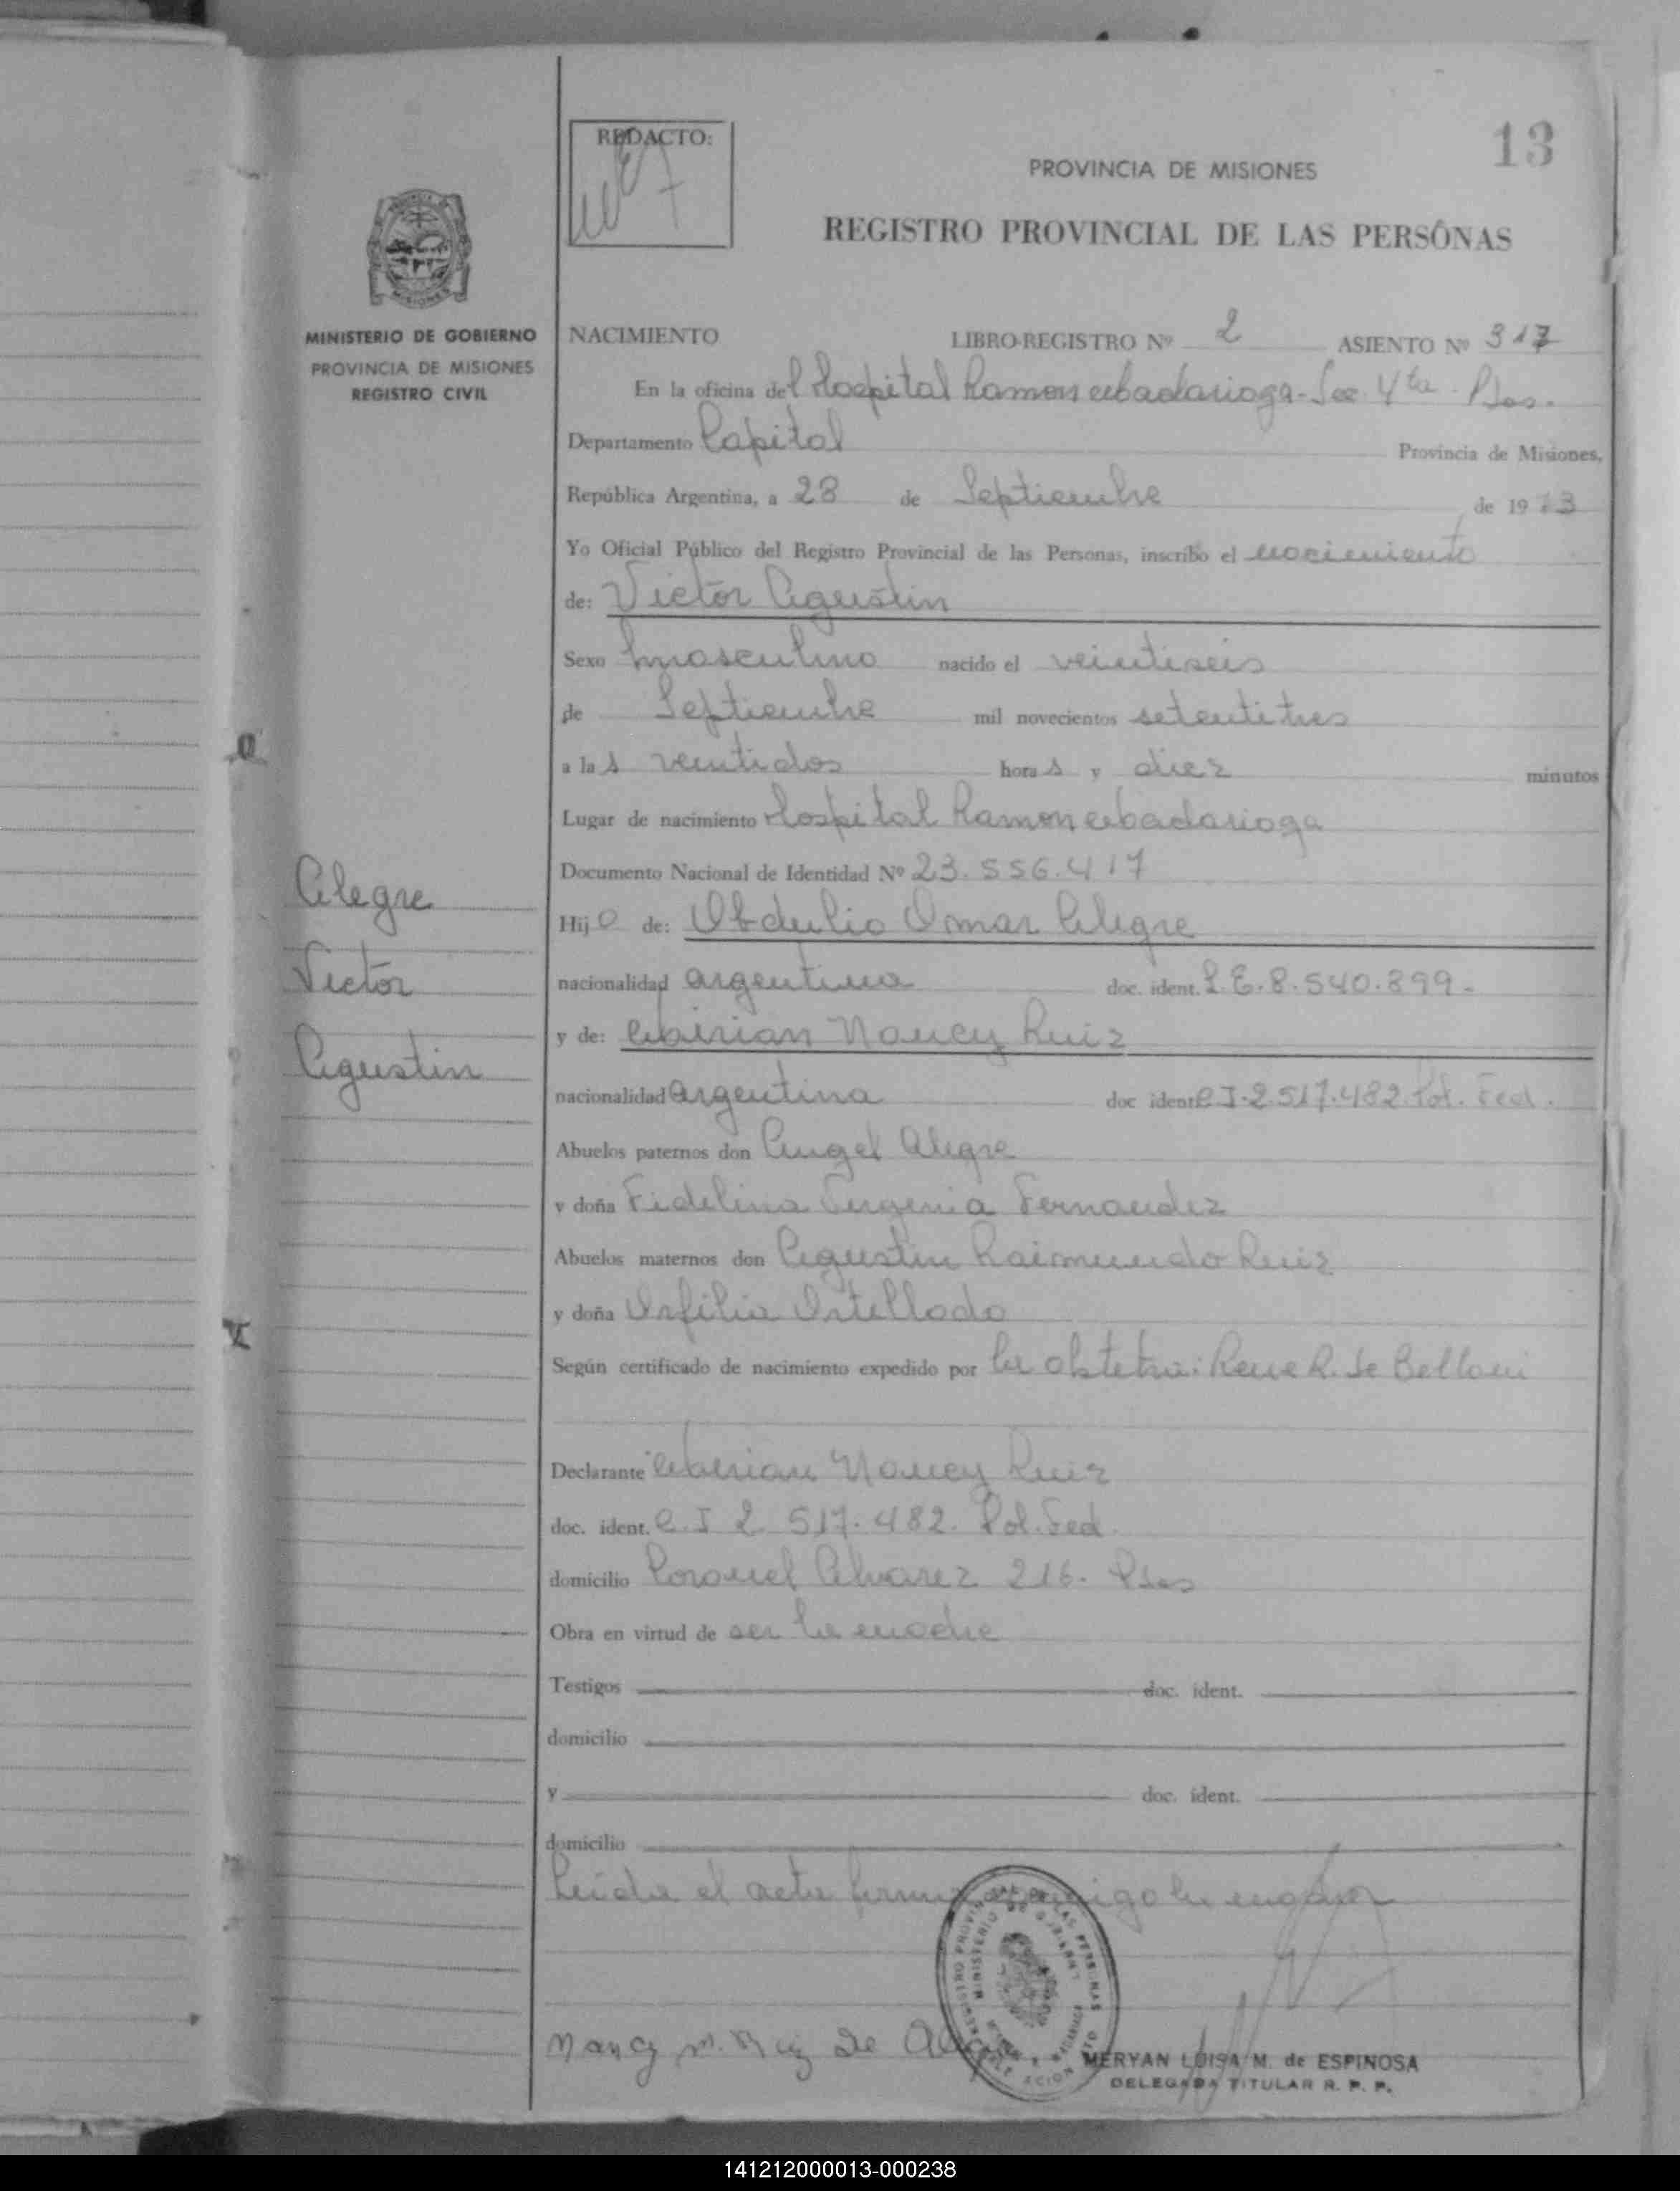 13
REDACTO:
PROVINCIA DE MISIONES
REGISTRO PROVINCIAL DE LAS PERSONAS
MINISTERIO DE GOBIERNO
PROVINCIA DE MISIONES
REGISTRO CIVIL
NACIMIENTO LIBRO-REGISTRO Nº 2 ASIENTO Nº 317
En la oficina del Hospital Ramon Madariaga - Sec. 4ta. Pdas.
Departamento Capital Provincia de Misiones,
República Argentina, a 28 de Septiembre de 1973
Yo Oficial Público del Registro Provincial de las Personas, inscribo el nacimiento
de: Victor Agustin
Sexo masculino nacido el veintiseis
de Septiembre mil novecientos setentitres
a las veintidos horas y diez minutos
Lugar de nacimiento Hospital Ramon Madariaga
Documento Nacional de Identidad Nº 23.556.417
Hijo de: Obdulio Omar Alegre
nacionalidad argentina doc. ident. L.E. 8.540.899.-
y de: Mirian Nancy Ruiz
nacionalidad argentina doc ident C.I. 2.517.482. Pol. Fed.
Abuelos paternos don Angel Alegre
y doña Fidelina Eugenia Fernandez
Abuelos maternos don Agustin Raimundo Ruiz
y doña Orfilia
Según certificado de nacimiento expedido por la obstetra: Rene R. de Belloni
Declarante Mirian Nancy Ruiz
doc. ident. C.I 2 517.482. Pol. Fed.
domicilio Coronel Alvarez 216. Pdas
Obra en virtud de ser la madre
Testigos doc. ident.
domicilio
y doc. ident.
domicilio
Leida el acta firma conmigo la
Nancy M. Ruiz de
MERYAN LUISA M. de ESPINOSA
DELEGADA TITULAR R. P. P.
Alegre
Victor
Agustin
REGISTRO PROVINCIAL DE LAS PERSONAS
MINISTERIO DE GOBIERNO
141212000013-000238